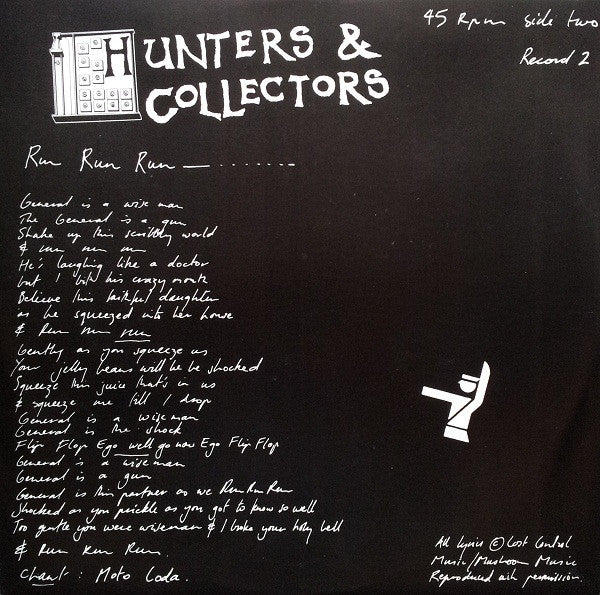 45 rpm side two
Record 2
HUNTERS &
COLLECTORS
Run Run Run — . . . . . . . -
General is a wise man
The General is a gun
Shake up this scribbly world
& run run run
He's laughing like a doctor
but I bite his crazy mouth
Believe this faithful daughter
as he squeezed into her house
& Run run run
Gently as you squeeze us
Your jelly beans will be be shocked
Squeeze this juice that's in us
& squeeze me till I drop
General is a wiseman
General is the shock
Flip Flop Ego well go now Ego Flip Flop
General is a wiseman
General is a gun
General is this partner as we Run Run Run
Shocked as you prickle as you got to know so well
Too gentle you were wiseman & I broke your holy bell
& Run Run Run.
Chant: Moto Loda.
All lyrics © Lost Control
Music/Mushroom Music
Reproduced with permission.